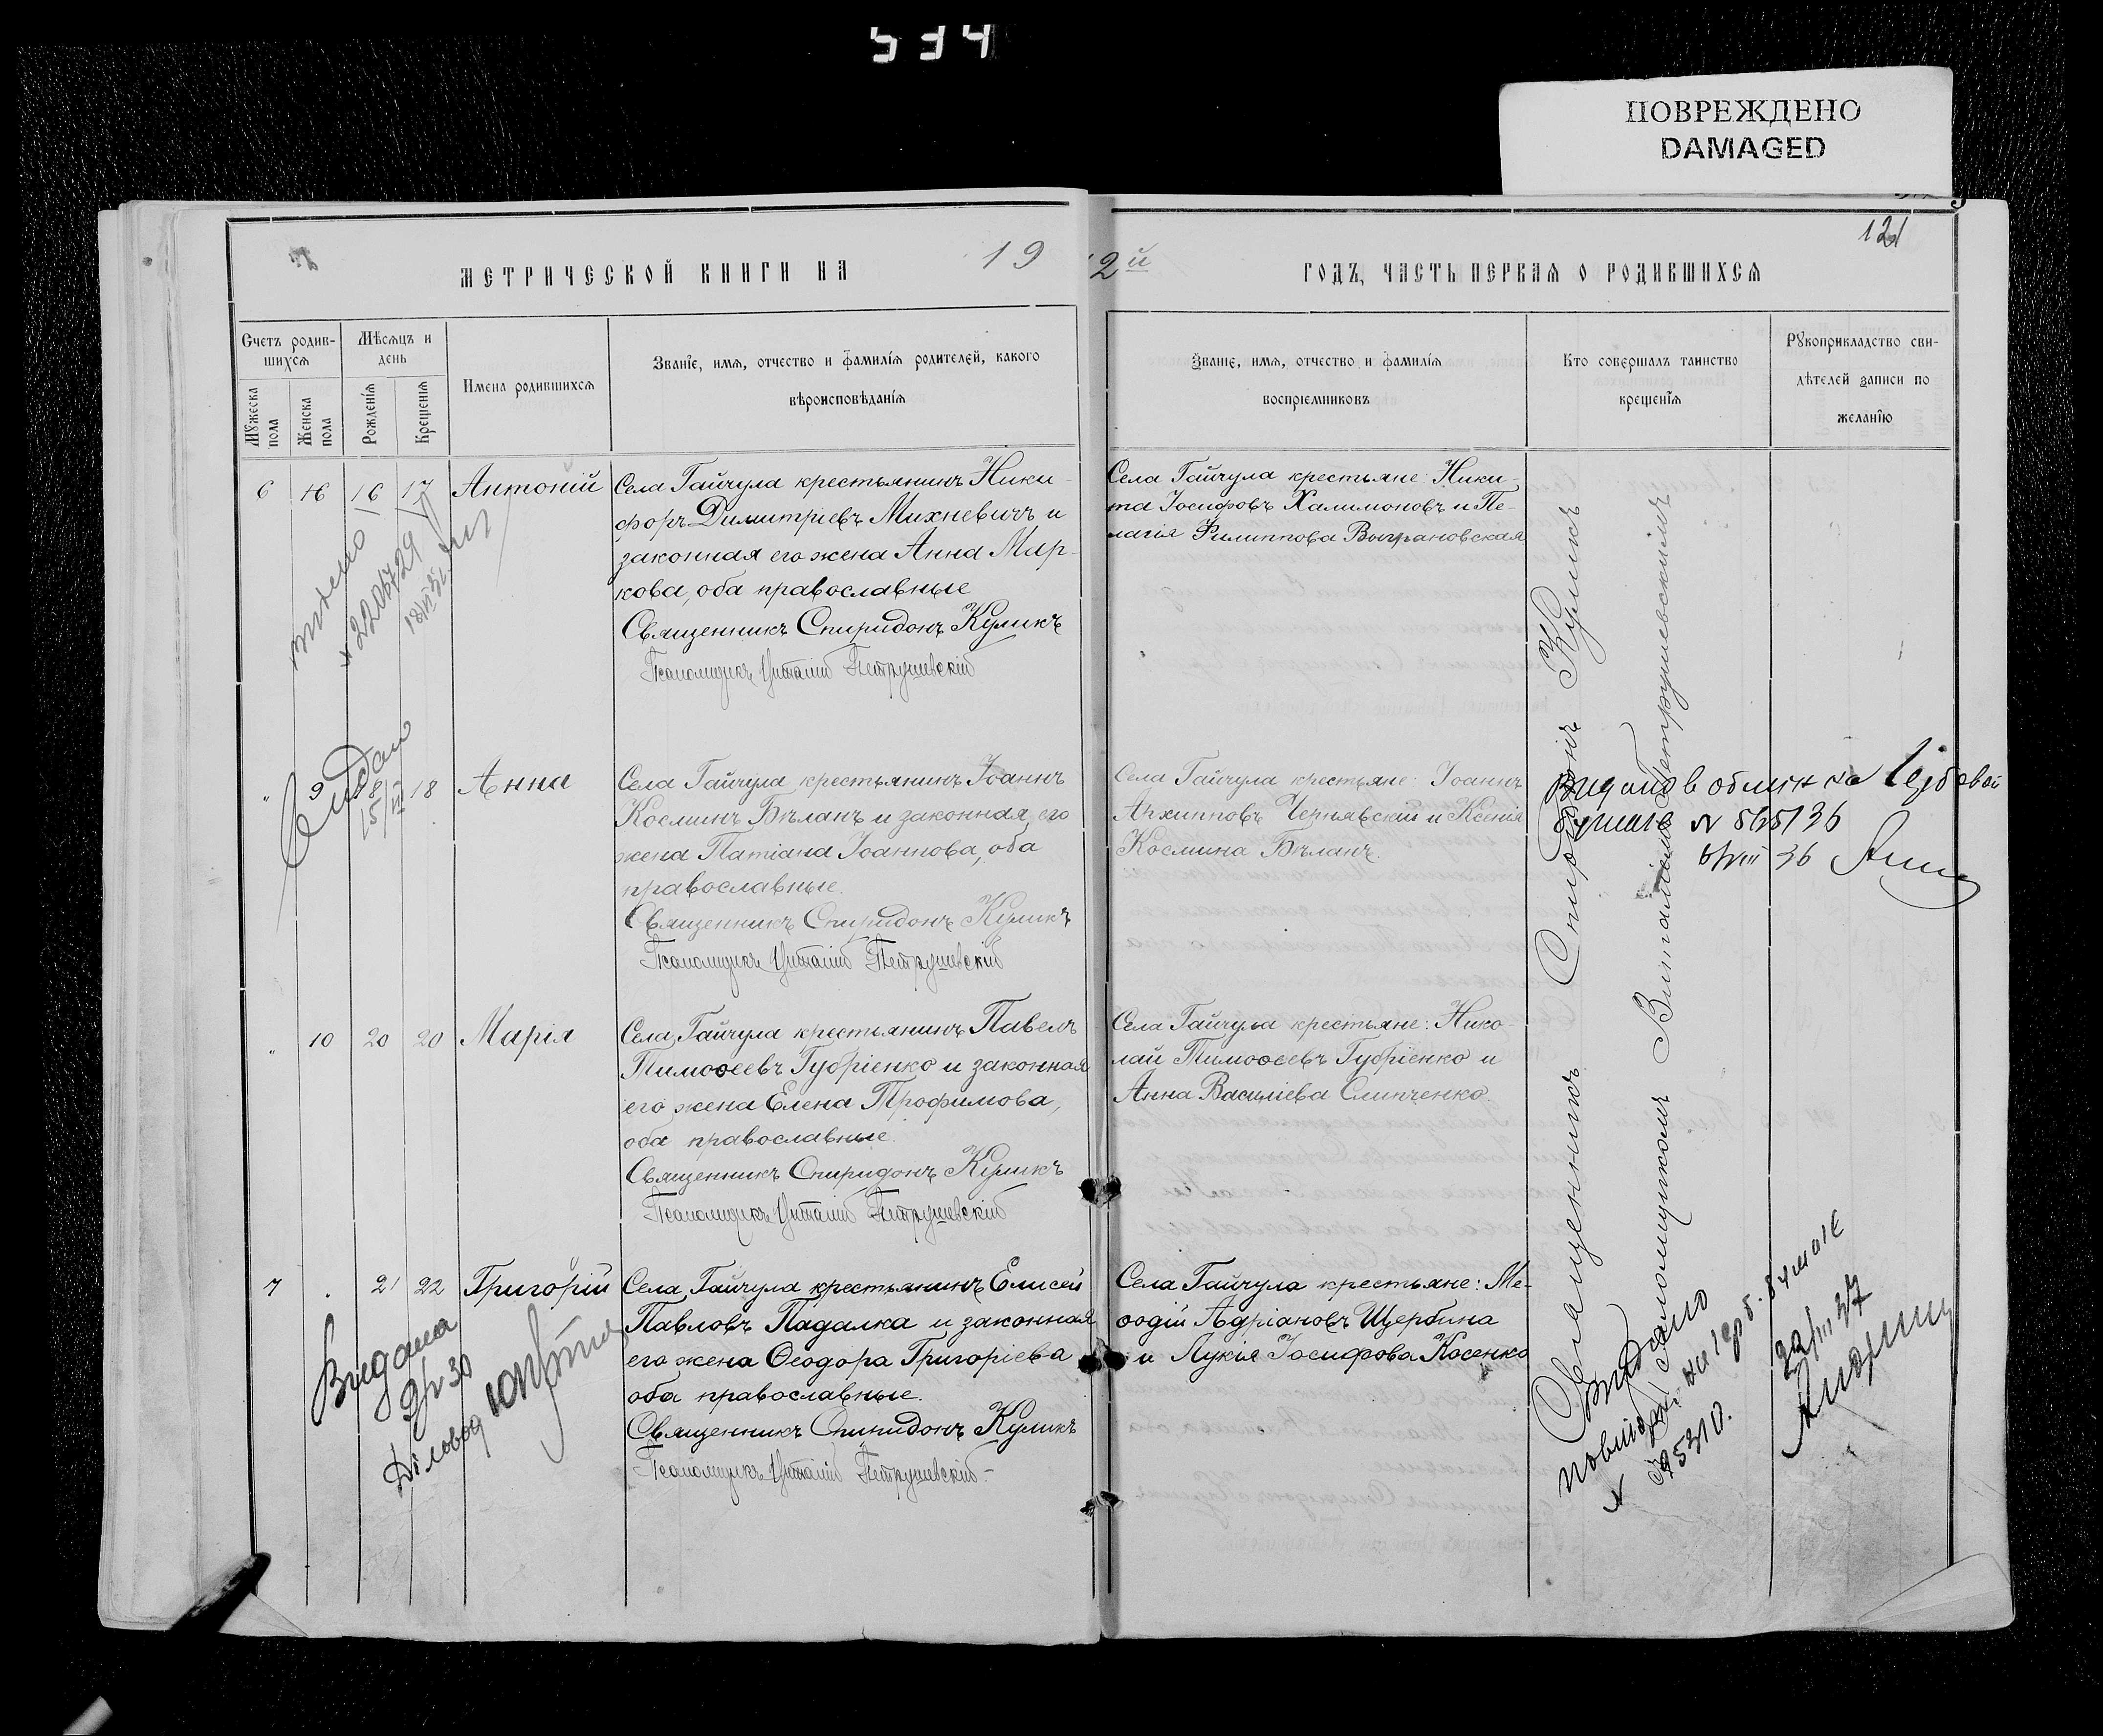 534
ПОВРЕЖДЕНО
DAMAGED
121
МЕТРИЧЕСКОЙ КНИГИ НА 19
2й ГОДЪ, ЧАСТЬ ПЕРВАЯ О РОДИВШИХСЯ
Счетъ родив-
шихся
Мѣсяцъ и
день
Мужеска
пола
Женска
пола
Рожденія
Крещенія
Имена родившихся
Званіе, имя, отчество и фамилія родителей, какого
вѣроисповѣданія
Званіе, имя, отчество и фамилія
воспріемниковъ
Кто совершалъ таинство
крещенія
Рукоприкладство сви-
дѣтелей записи по
желанію
6 16 17 Антоній
Села Гайчула крестьянинъ Ники-
форъ Димитріевъ Михневичъ и
законная его жена Анна Мар-
кова, оба православные
Священникъ Спиридонъ Куликъ
Псаломщикъ Виталій Петрушевскій
Села Гайчула крестьяне: Ники-
та Іосифовъ Халимоновъ и Пе-
лагія Филиппова Выграновская
" 9 18 18 Анна
15/VI
Села Гайчула крестьянинъ Іоаннъ
Косминъ Бѣланъ и законная его
жена Татіана Іоаннова, оба
православные.
Священникъ Спиридонъ Куликъ
Псаломщикъ Виталій Петрушевскій
Села Гайчула крестьяне: Іоаннъ
Архипповъ Чернявскій и Ксенія
Космина Бѣланъ.
" 10 20 20 Марія
Села Гайчула крестьянинъ Павелъ
Тимоѳеевъ Губріенко и законная
его жена Елена Трофимова,
оба православные.
Священникъ Спиридонъ Куликъ
Псаломщикъ Виталій Петрушевскій
Села Гайчула крестьяне: Нико-
лай Тимоѳеевъ Губріенко и
Анна Василіева Слипченко.
7 . 21 22 Григорій
Села Гайчула крестьянинъ Елисей
Павловъ Падалка и законная
его жена Ѳеодора Григоріева
оба православные.
Священникъ Спиридонъ Куликъ
Псаломщикъ Виталій Петрушевскій.-
Села Гайчула крестьяне: Ме-
ѳодій Адріановъ Щербина
и Лукія Іосифова Косенко
Видана
9/V 30
Діловод
Священникъ Спиридонъ Куликъ
съ Псаломщикомъ Виталіемъ Петрушевскимъ
36
Видано
22/III 37